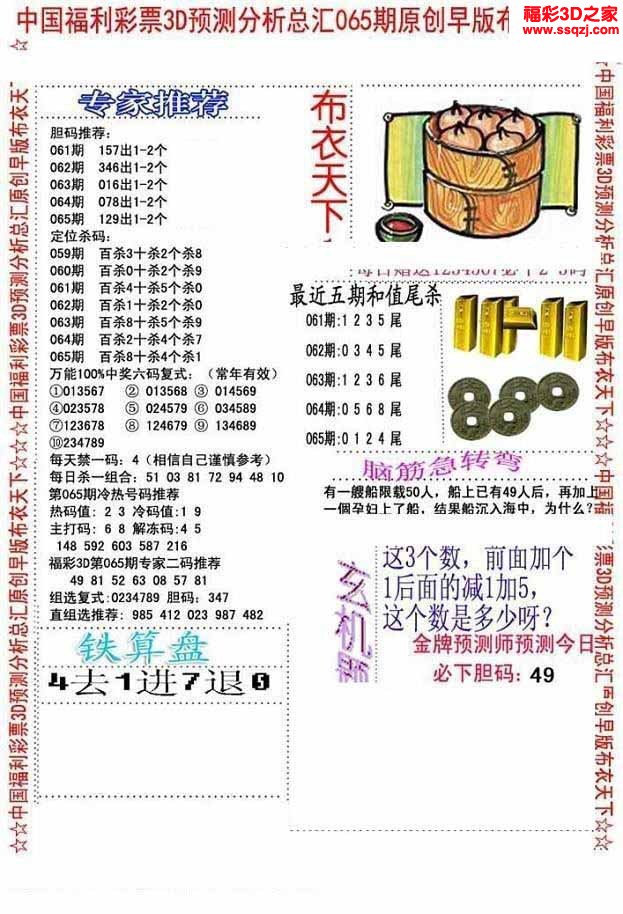 中国福利彩票3D预测分析总汇065期原创早版布
福彩3D之家
www.ssqzj.com
☆☆中国福利彩票3D预测分析总汇原创早版布衣天下☆☆☆中国福利彩票3D预测分析总汇原创早版布衣天
专家推荐
胆码推荐:
061期 157出1-2个
062期 346出1-2个
063期 016出1-2个
064期 078出1-2个
065期 129出1-2个
定位杀码:
059期 百杀3十杀2个杀8
060期 百杀0十杀2个杀9
061期 百杀4十杀5个杀0
062期 百杀1十杀2个杀0
063期 百杀8十杀5个杀9
064期 百杀2十杀4个杀7
065期 百杀8十杀4个杀1
万能100%中奖六码复式: (常年有效)
①013567 ②013568 ③014569
④023578 ⑤024579 ⑥034589
⑦123678 ⑧124679 ⑨134689
⑩234789
每天禁一码: 4 (相信自己谨慎参考)
每日杀一组合: 51 03 81 72 94 48 10
第065期冷热号码推荐
热码值: 2 3 冷码值:1 9
主打码: 6 8 解冻码:4 5
148 592 603 587 216
福彩3D第065期专家二码推荐
49 81 52 63 08 57 81
组选复式:0234789 胆码: 347
直组选推荐: 985 412 023 987 482
铁算盘
4去1进7退0
布衣天下
最近五期和值尾杀
061期:1 2 3 5 尾
062期:0 3 4 5 尾
063期:1 2 3 6 尾
064期:0 5 6 8 尾
065期:0 1 2 4 尾
脑筋急转弯
有一艘船限载50人, 船上已有49人后, 再加上
一個孕妇上了船, 结果船沉入海中, 为什么?
玄机
这3个数, 前面加个
1后面的减1加5,
这个数是多少呀?
金牌预测师预测今日
必下胆码: 49
☆中国福利彩票3D预测分析总汇原创早版布衣天下☆☆☆中国福
彩票3D预测分析总汇原创早版布衣天下☆☆